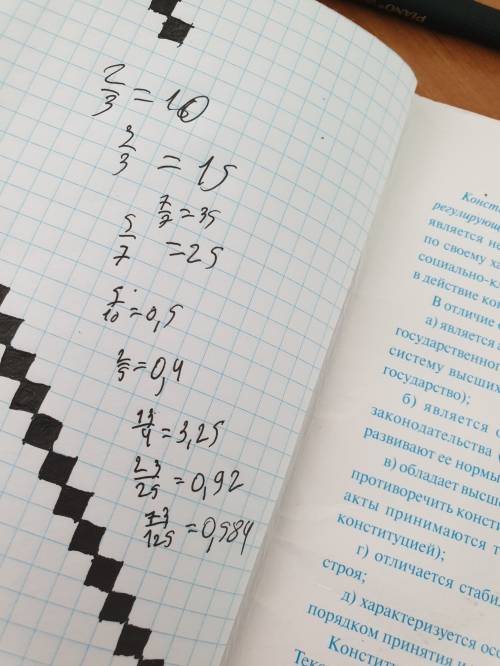 PIANO
2/3 = 10
3/3 = 15
7/7 = 35
5/7 = 25
5/10 = 0,5
2/5 = 0,4
13/4 = 3,25
23/25 = 0,92
73/125 = 0,584
Конст
регулирующ
является не
по своему ха
социально-кл
в действие кон
В отличие о
а) является а
государственного
систему высши
государство);
б) является о
законодательства (
развивают ее нормы
в) обладает высш
противоречить консти
акты принимаются
конституцией);
г) отличается стабил
строя;
д) характеризуется осо
порядком принятия и
Констит
Текс